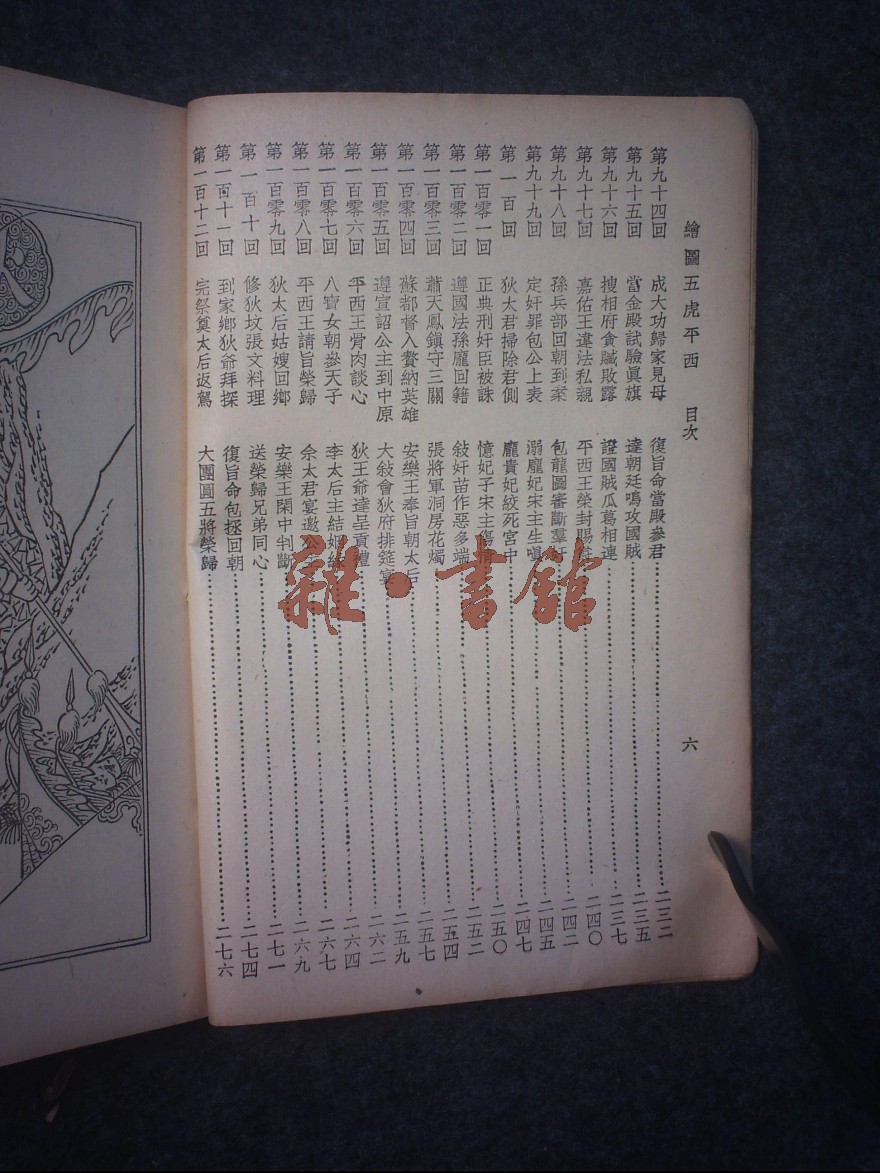 繪圖五虎平西 目次 六
第九十四回 成大功歸家見母 復旨命當殿參君 二三二
第九十五回 當金殿試驗眞旗 達朝廷鳴攻國賊 二三五
第九十六回 搜相府貪贓敗露 證國賊瓜葛相連 二三七
第九十七回 嘉佑王違法私親 平西王榮封賜 二四〇
第九十八回 孫兵部回朝到案 包龍圖審斷羣奸 二四二
第九十九回 定奸罪包公上表 溺龐妃宋主生嗔 二四五
第一百回 狄太君掃除君側 龐貴妃絞死宮中 二四七
第一百零一回 正典刑奸臣被誅 憶妃子宋主傷情 二五〇
第一百零二回 遵國法孫龐回籍 敍奸苗作惡多端 二五二
第一百零三回 蕭天鳳鎮守三關 張將軍洞房花燭 二五四
第一百零四回 蘇都督入贅納英雄 安樂王奉旨朝太后 二五七
第一百零五回 遵宣詔公主到中原 大敍會狄府排筵宴 二五九
第一百零六回 平西王骨肉談心 狄王爺達呈貢禮 二六二
第一百零七回 八寶女朝參天子 李太后主結姻 二六四
第一百零八回 平西王請旨榮歸 佘太君宴邀公主 二六七
第一百零九回 狄太后姑嫂回鄉 安樂王閑中判斷 二六九
第一百十回 修狄墳張文料理 送榮歸兄弟同心 二七一
第一百十一回 到家鄉狄爺拜探 復旨命包拯回朝 二七四
第一百十二回 完祭奠太后返駕 大團圓五將榮歸 二七六
雜·書館